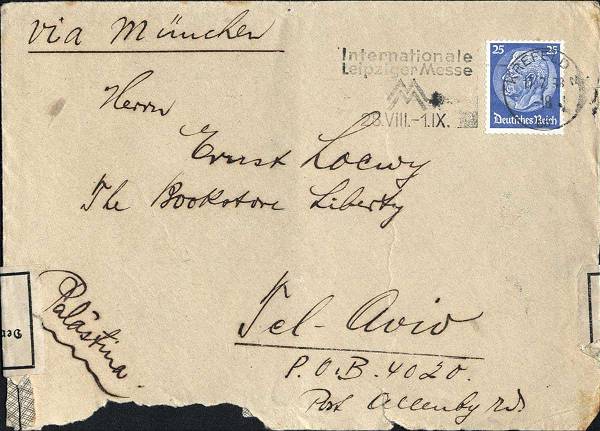 via München
Internationale
Leipziger Messe
28.VIII.-1.IX.
25 25
Deutsches Reich
KREFELD
Herrn
Ernst Loewy
The Bookstore Liberty
Palästina
Tel-Aviv
P.O.B. 4020.
Post Allenby Rd